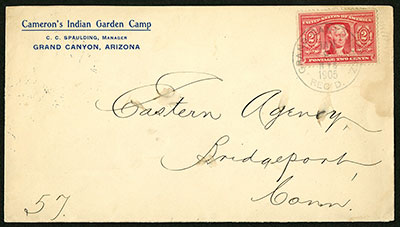 Cameron's Indian Garden Camp
C. C. SPAULDING, MANAGER
GRAND CANYON, ARIZONA
2 2
POSTAGE TWO CENTS
1905
REC'D.
Eastern Agency,
Bridgeport,
Conn.
57.